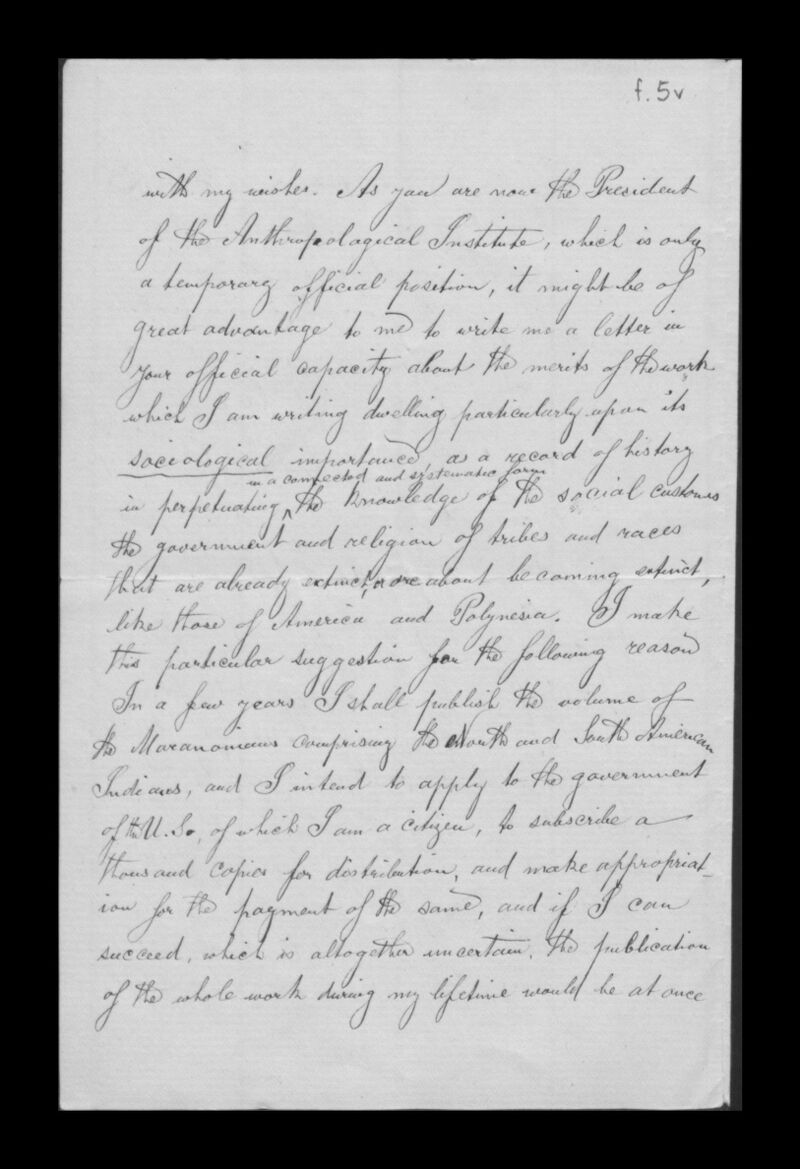 f. 5v
with my wishes. As you are now the President
of the Anthropological Institute, which is only
a temporary official position, it might be of
great advantage to me to write me a letter in
your official capacity about the merits of the work
which I am writing dwelling particularly upon its
sociological importance, as a record of history
in a connected and systematic form
in perpetuating ^ the knowledge of the social customs
the government and religion of tribes and races
that are already extinct, or are about becoming extinct,
like those of America and Polynesia. I make
this particular suggestion for the following reason
In a few years I shall publish the volume of
the Maranonians comprising the North and South American
Indians, and I intend to apply to the government
of the U. S., of which I am a citizen, to subscribe a
thousand copies for distribution, and make appropriat-
ion for the payment of the same, and if I can
succeed, which is altogether uncertain, the publication
of the whole work during my lifetime would be at once